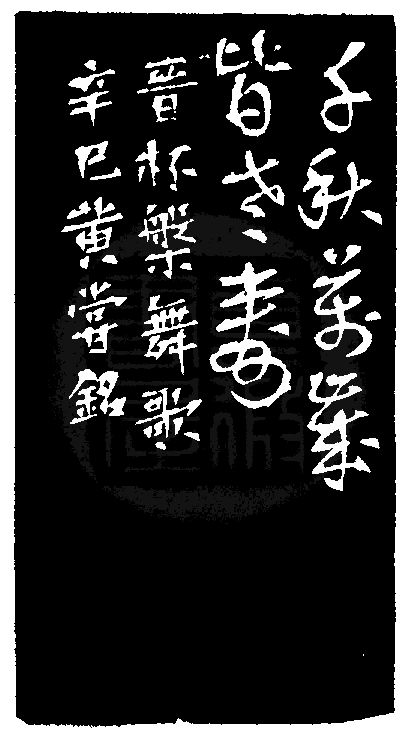 千秋萬歲
皆老壽
晉杯槃舞歌
辛巳黃嘗銘